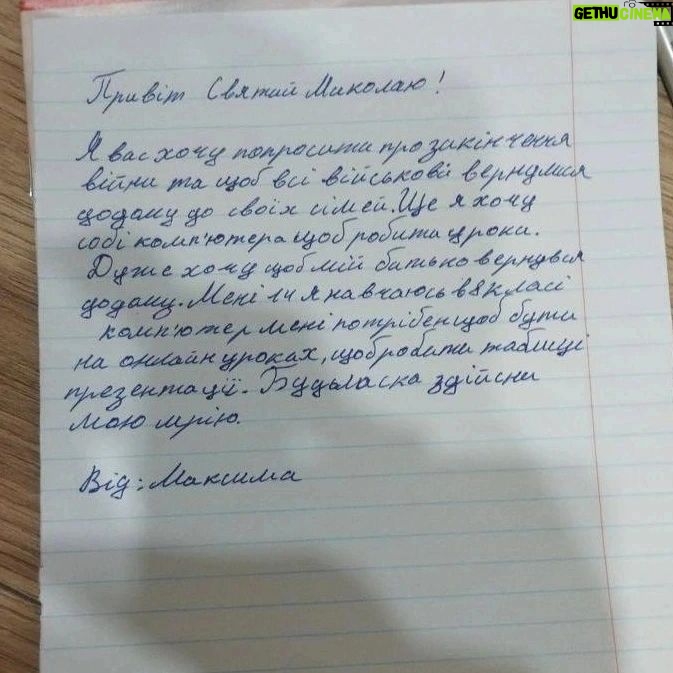 GETHUCINEMA
Привіт Святий Миколаю!
Я вас хочу попросити про закінчення
війни та щоб всі військові вернулися
додому до своїх сімей. Ще я хочу
собі комп'ютера щоб робити уроки.
Дуже хочу щоб мій батько вернувся
додому. Мені 14 я навчаюсь в 8 класі
комп'ютер мені потрібен щоб бути
на онлайн уроках, щоб робити таблиці
презентації. Будьласка здійсни
мою мрію.
Від: Максима